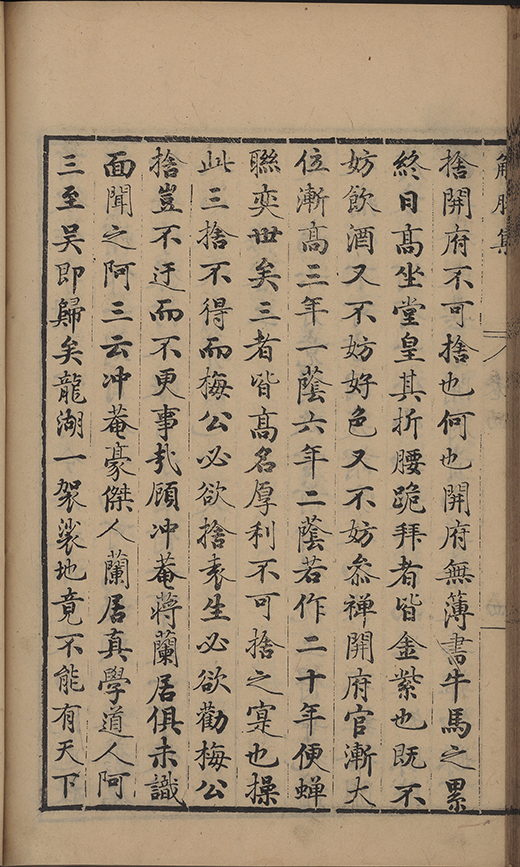 解脫集
捨開府不可捨也何也開府無薄書牛馬之累
終日髙坐堂皇其折腰跪拜者皆金紫也既不
妨飲酒又不妨好色又不妨叅禪開府官漸大
位漸髙三年一蔭六年二蔭若作二十年便蟬
聮奕世矣三者皆髙名厚利不可捨之寔也操
此三捨不得而梅公必欲捨袁生必欲勸梅公
捨豈不迂而不更事㢤顧冲菴蔣蘭居俱未識
面聞之阿三云冲菴豪傑人蘭居真學道人阿
三至吴即歸矣龍湖一袈裟地竟不能有天下